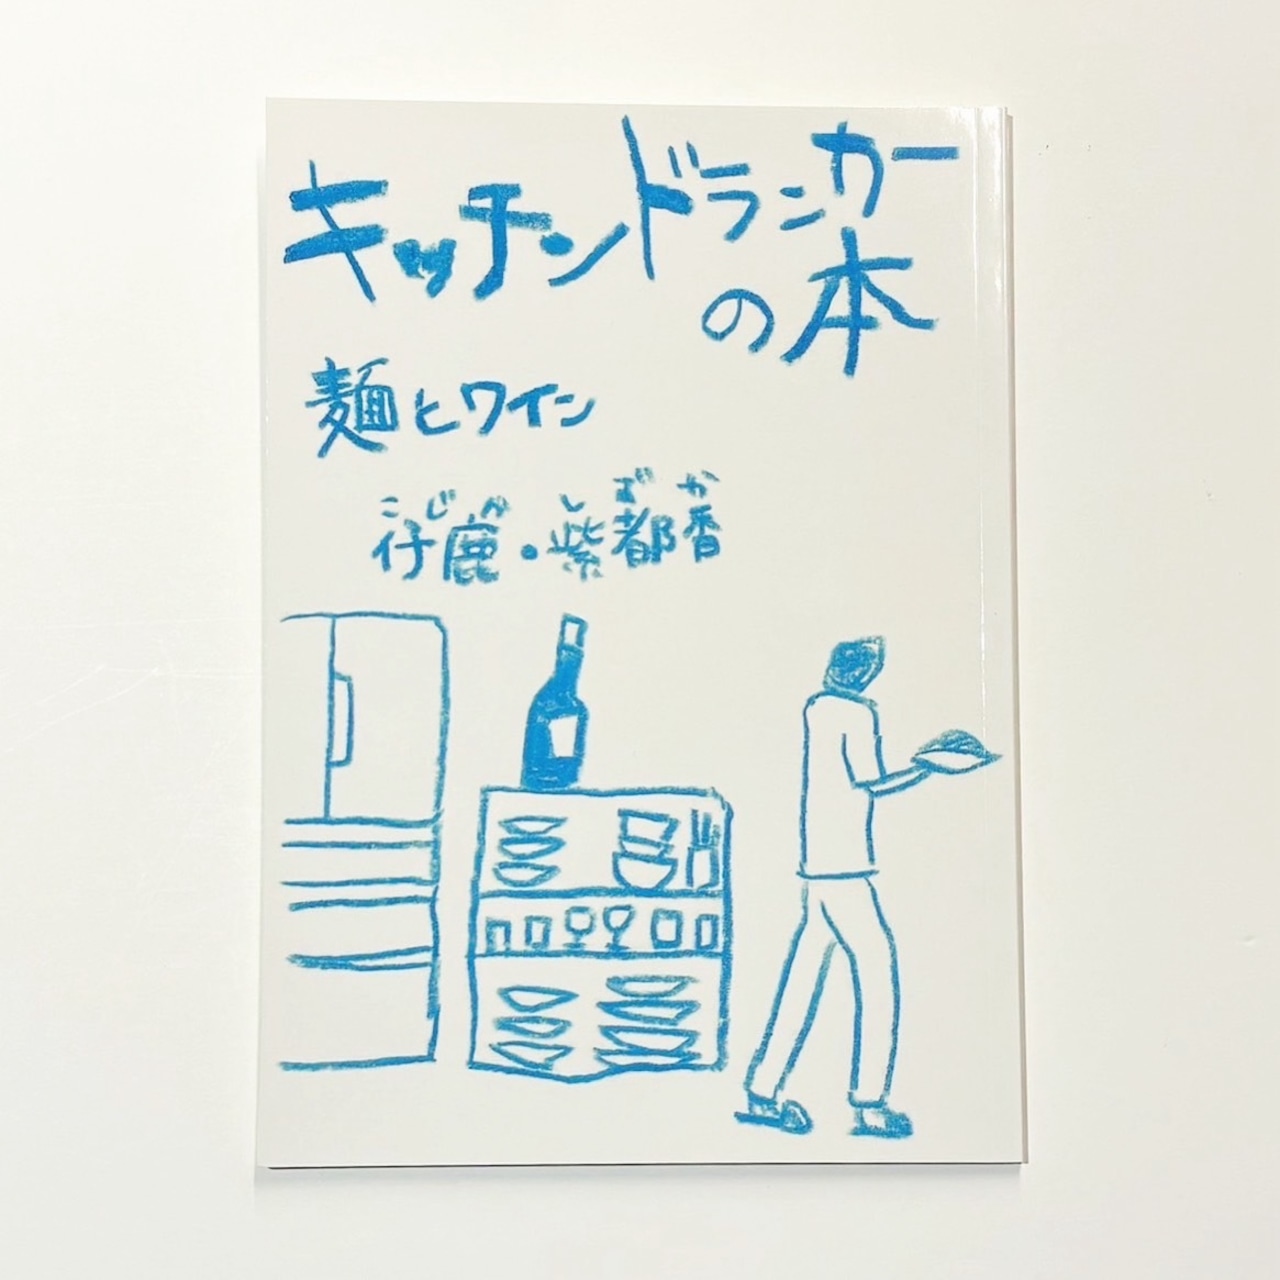 キッチンドランカー
の本
麺とワイン
こじか しずか
仔鹿・紫都香